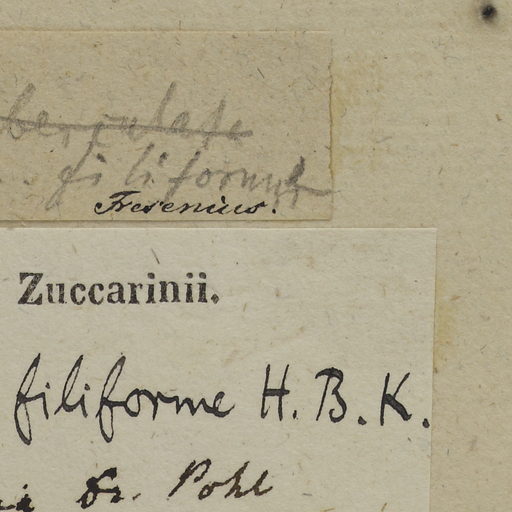 filiforme
Fresenius.
Zuccarinii.
filiforme H. B. K.
Dr. Pohl